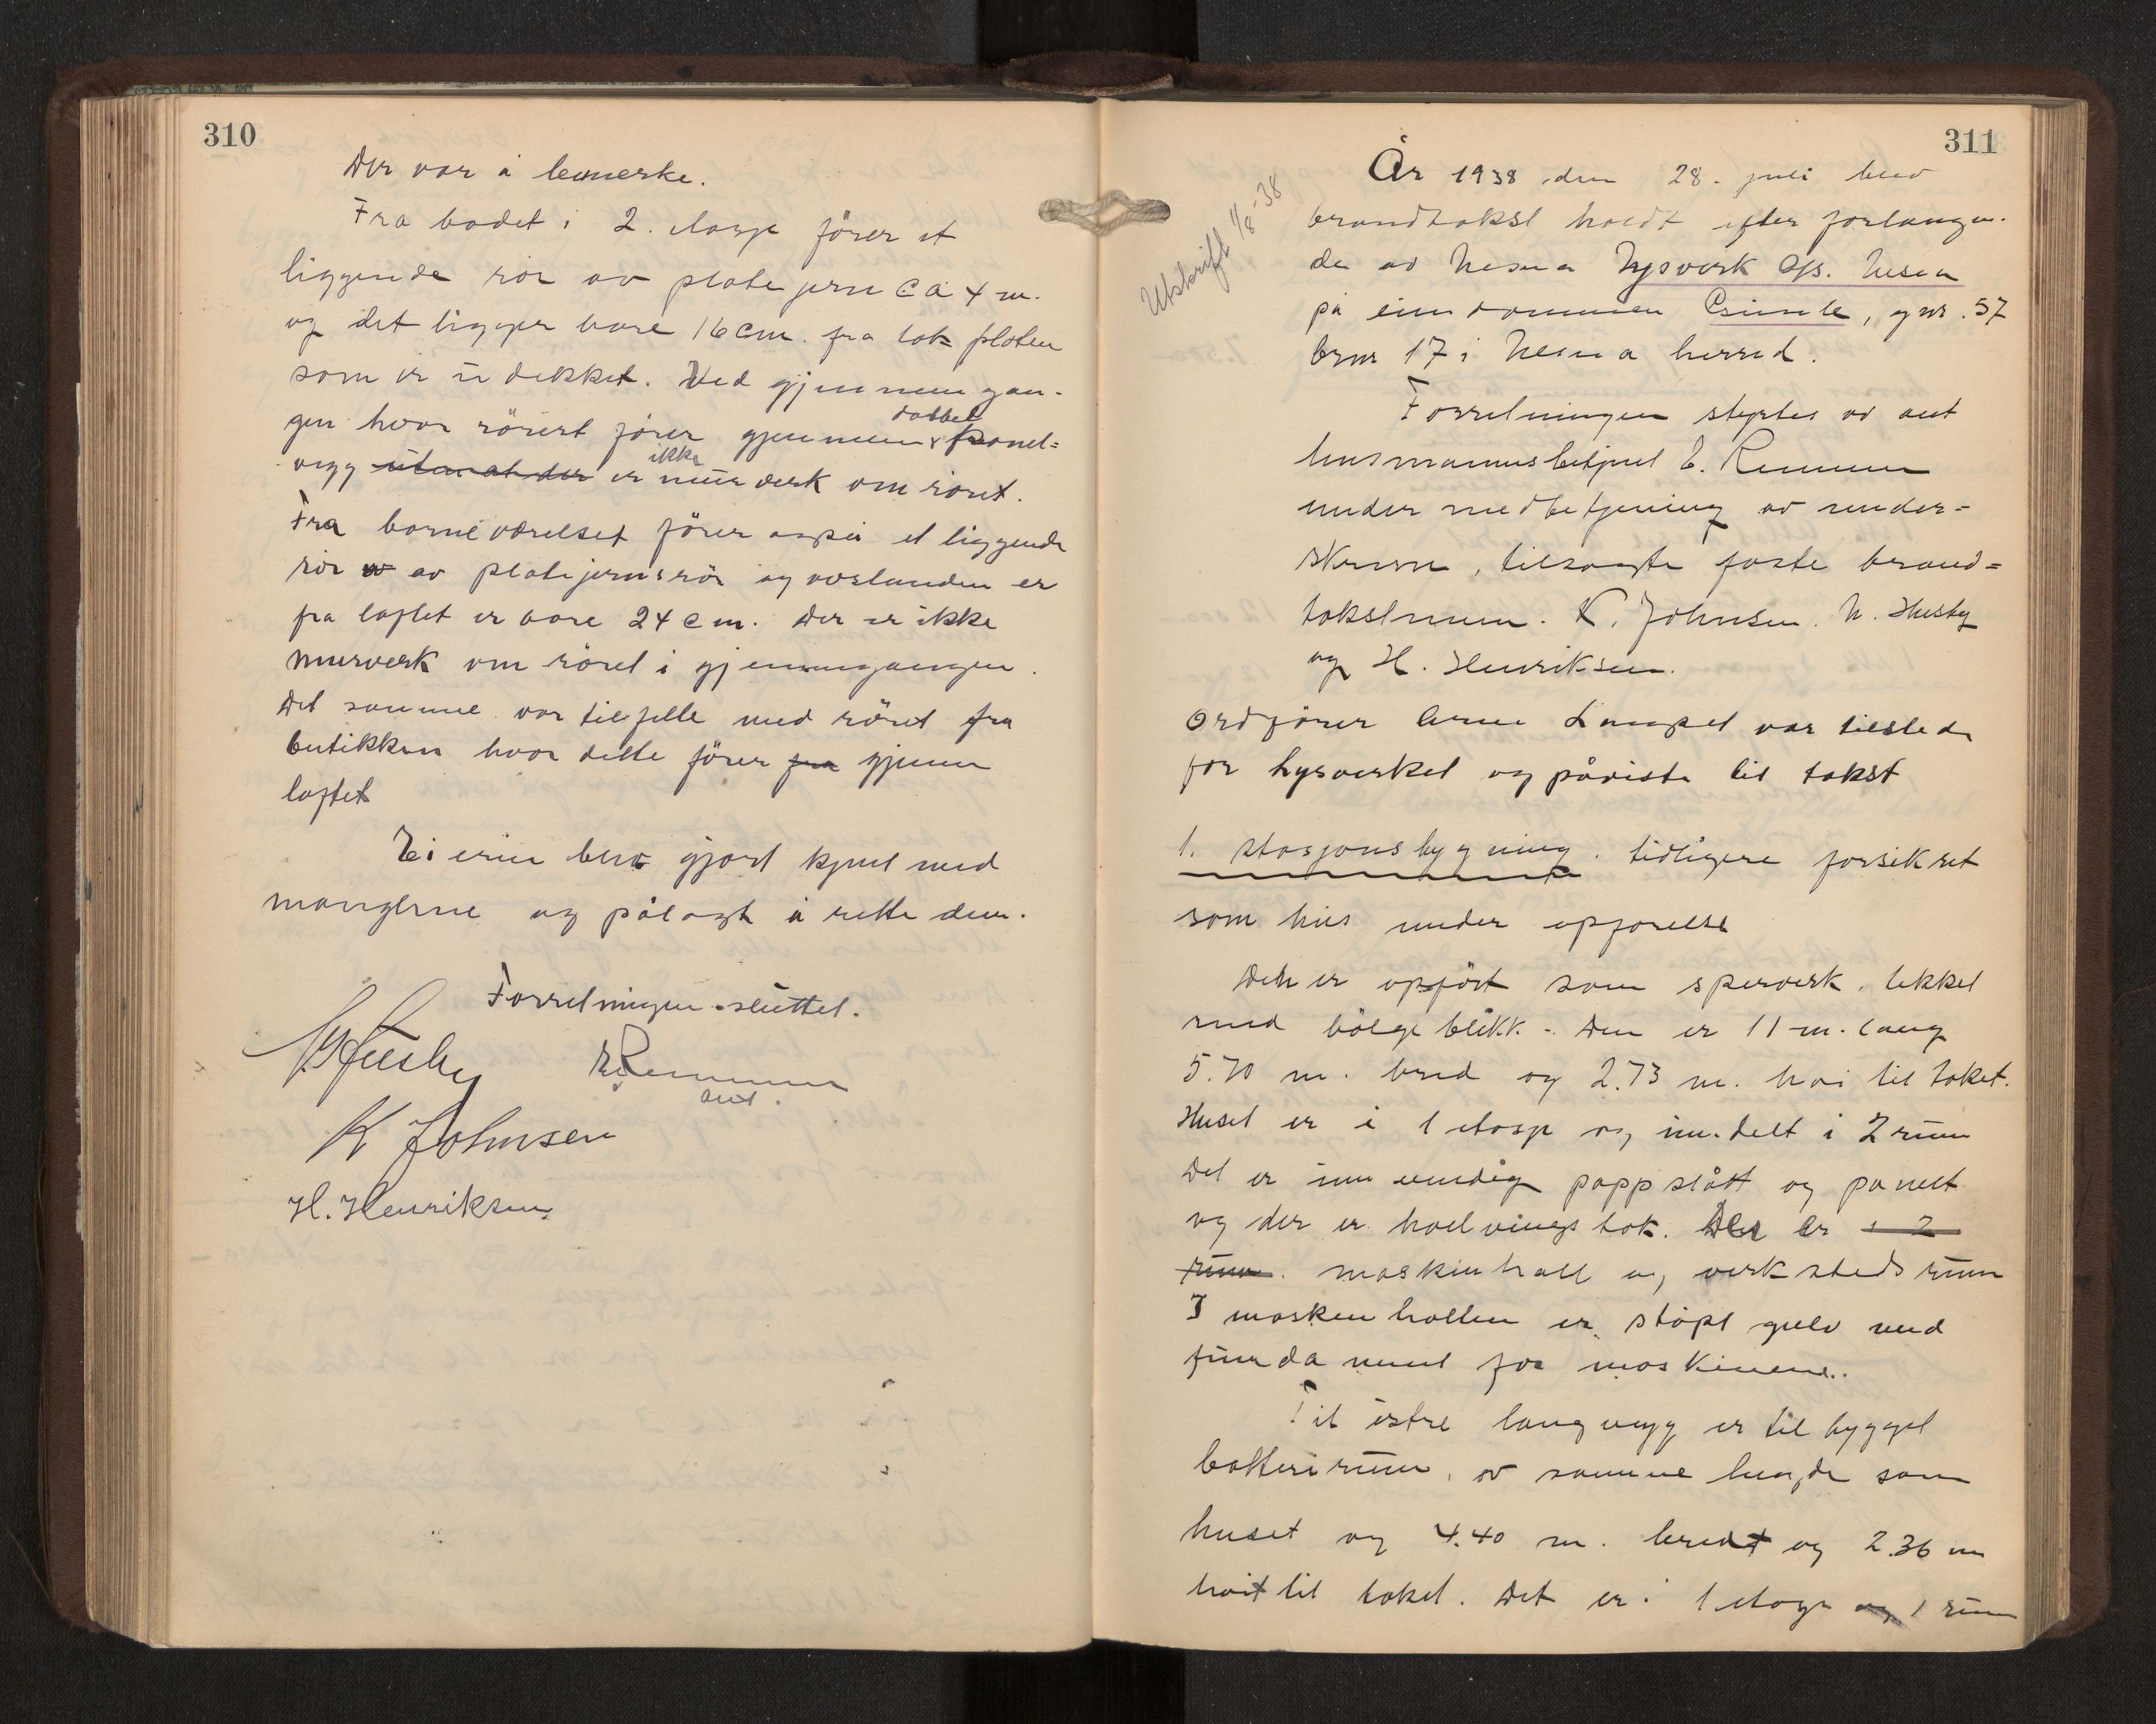 310
Der var å bemerke.
Fra badet i 2. etasje fører et
liggende rør av platejern ca 4 m.
og det ligger bare 16 cm. fra tak platen
som er udekket. Ved gjennemgan-
gen hvor røret fører gjennem dobbel panel=
vegg uten at der er ikke murverk om røret.
Fra barneværelset fører også et liggende
rør av platejernsrør og avstanden er
fra loftet er bare 24 cm. Der er ikke
murverk om røret i gjennemgangen.
Det samme var tilfelle med røret fra
butikken hvor dette fører fra gjennem
loftet
Eieren blev gjort kjent med
manglerne og pålagt å rette dem.
Forretningen sluttet.
N Husby E Remmen
aut.
K Johnsen
H. Henriksen
311
Utskrift 1/8-38
År 1938 den 28. juli blev
brandtakst holdt efter forlangen-
de av Nesna lysverk A/s. Nesna
på eiendommen, gnr. 57
brnr 17 i Nesna herred.
Forretningen styrtes av aut
lensmannsbetjent E. Remmen
under medbetjening av under=
skrevne, tilsagte faste brand=
takstmenn. K. Johnsen. N. Husby
og H. Henriksen.
Ordfører Arne var tilstede
for lysverket og påviste til takst
1. Stasjonsbygning. tidligere forsikret
som hus under opførelse
Den er opført som sperverk, tekket
med bølgeblikk. - Den er 11 m. lang
5.70 m. bred og 2.73 m. høi til taket.
Huset er i 1 etasje og inndelt i 2 rum
Det er innvendig pappslått og panelt
og der er hvelvings tak. Der er i 2
rum. maskinhall og verkstedsrum
I maskenhallen er støpt gulv med
fundament for maskinene.
Til østre langvegg er tilbygget
batterirum, av samme lengde som
huset og 4.40 m. bredt og 2.36 m
høit til taket. Det er i 1 etasje og 1 rum